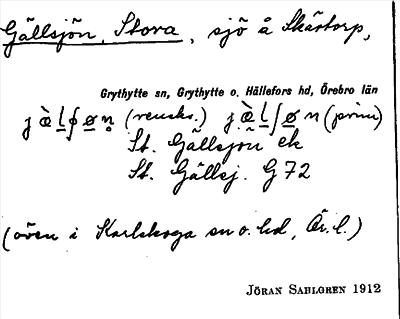 Gällsjön, Stora, sjö å Skärtorp,
Grythytte sn, Grythytte o. Hällefors hd, Örebro län
jæ̀l̲ʄøn̥ (rensks.) jæ̀l̲ʃøn (prim)
St. Gällsjön ek
St. Gällsj. G72
(även i Karlskoga sn o. hd, Ör. l.)
JÖRAN SAHLGREN 1912